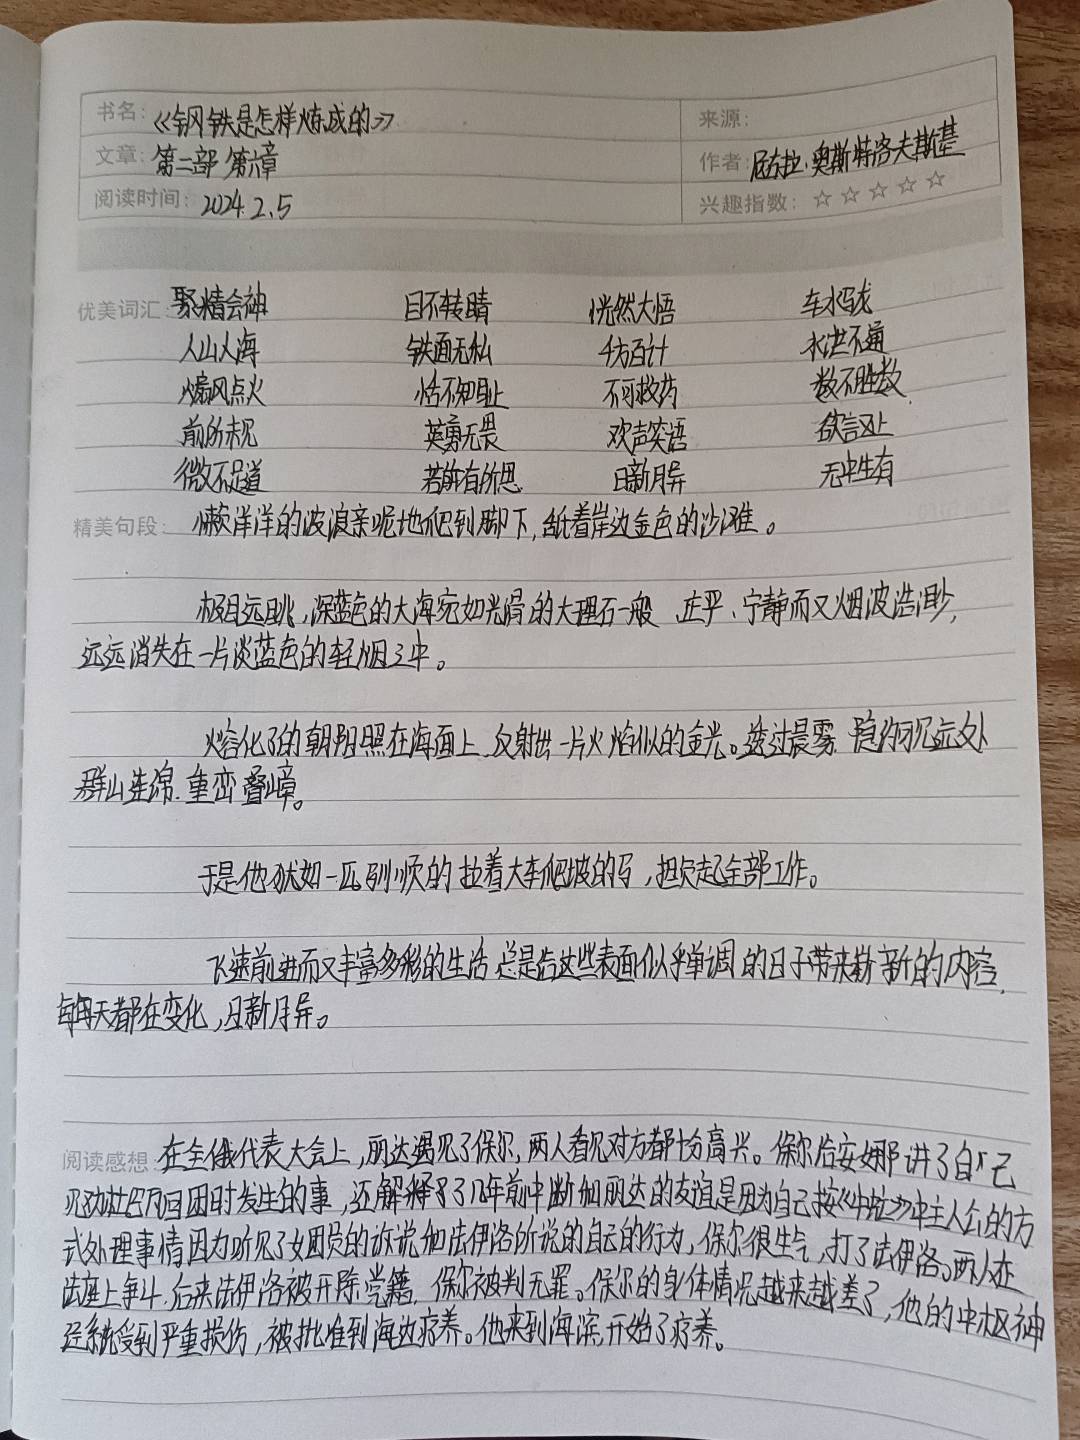 书名：《钢铁是怎样炼成的》 来源：
文章：第二部 第六章 作者：尼古拉·奥斯特洛夫斯基
阅读时间：2024.2.5 兴趣指数：☆☆☆☆☆
优美词汇：聚精会神 目不转睛 恍然大悟 车水马龙
人山人海 铁面无私 千方百计 水泄不通
煽风点火 恬不知耻 不可救药 数不胜数
前所未见 英勇无畏 欢声笑语 欲言又止
微不足道 若有所思 日新月异 无中生有
精美句段：懒洋洋的波浪亲昵地爬到脚下，舐着岸边金色的沙滩。
极目远眺，深蓝色的大海宛如光滑的大理石一般 庄严、宁静而又烟波浩渺，
远远消失在一片淡蓝色的轻烟之中。
熔化了的朝阳照在海面上，反射出一片火焰似的金光。透过晨雾 隐约可见远处
群山连绵.重峦叠嶂。
于是他犹如一匹驯顺的拉着大车爬坡的马，担负起全部工作。
飞速前进而又丰富多彩的生活 总是给这些表面似乎单调的日子带来新的内容，
每天都在变化，日新月异。
阅读感想：在全俄代表大会上，丽达遇见了保尔，两人看见对方都十分高兴。保尔给安娜讲了自己
见动 回团时发生的事，还解释了几年前中断和丽达的友谊是因为自己按《牛虻》中主人公的方
式处理事情因为听见了女团员的诉说和法伊洛所说的自己的行为，保尔很生气，打了法伊洛。两人在
法庭上争斗.后来法伊洛被开除党籍，保尔被判无罪。保尔的身体情况越来越差了，他的中枢神
经系统受到严重损伤，被批准到海边疗养。他来到海滨，开始了疗养。